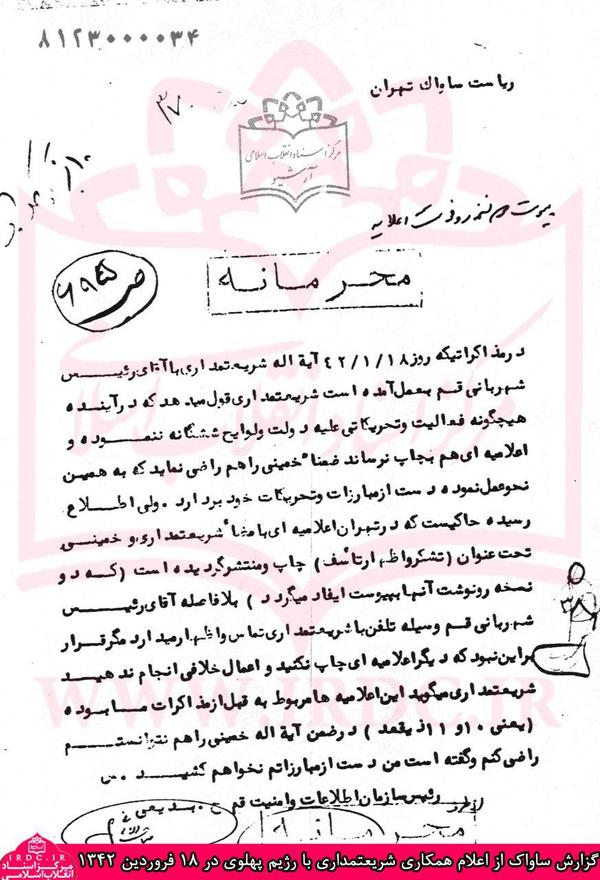 ۸۱۲۳۰۰۰۰۳۴
ریاست ساواک تهران
۳۷۰
مرکز اسناد انقلاب اسلامی
آرشیو
پیوست دو نسخه رونوشت اعلامیه
محرمانه
در مذاکراتیکه روز ۴۲/۱/۱۸ آیة اله شریعتمداری با آقای رئیس
شهربانی قم بعمل آمده است شریعتمداری قول میدهد که در آینده
هیچگونه فعالیت و تحریکاتی علیه دولت و لوایح ششگانه ننموده و
اعلامیه ای هم بچاپ نرساند ضمناً خمینی را هم راضی نماید که به همین
نحو عمل نموده دست از مبارزات و تحریکات خود بردارد . ولی اطلاع
رسیده حاکیست که در تهران اعلامیه ای با مضاً شریعتمداری و خمینی
تحت عنوان (تشکر و اظهار تأسف) چاپ و منتشر گردیده است (که دو
نسخه رونوشت آنها بپیوست ایفاد میگردد) بلافاصله آقای رئیس
شهربانی قم وسیله تلفن با شریعتمداری تماس و اظهار میدارد مگر قرار
براین نبود که دیگر اعلامیه ای چاپ نکنید و اعمال خلافی انجام ندهید
شریعتمداری میگوید این اعلامیه ها مربوط به قبل از مذاکرات ما بوده
(یعنی ۱۰ و ۱۱ ذیقعد) در ضمن آیة اله خمینی را هم نتوانستم
راضی کنم و گفته است من دست از مبارزاتم نخواهم کشید . س
رئیس سازمان اطلاعات و امنیت قم ح . بدیعی
محرمانه
WWW.IRDC.IR
گزارش ساواک از اعلام همکاری شریعتمداری با رژیم پهلوی در ۱۸ فروردین ۱۳۴۲
IRDC.IR
مرکز اسناد
انقلاب اسلامی